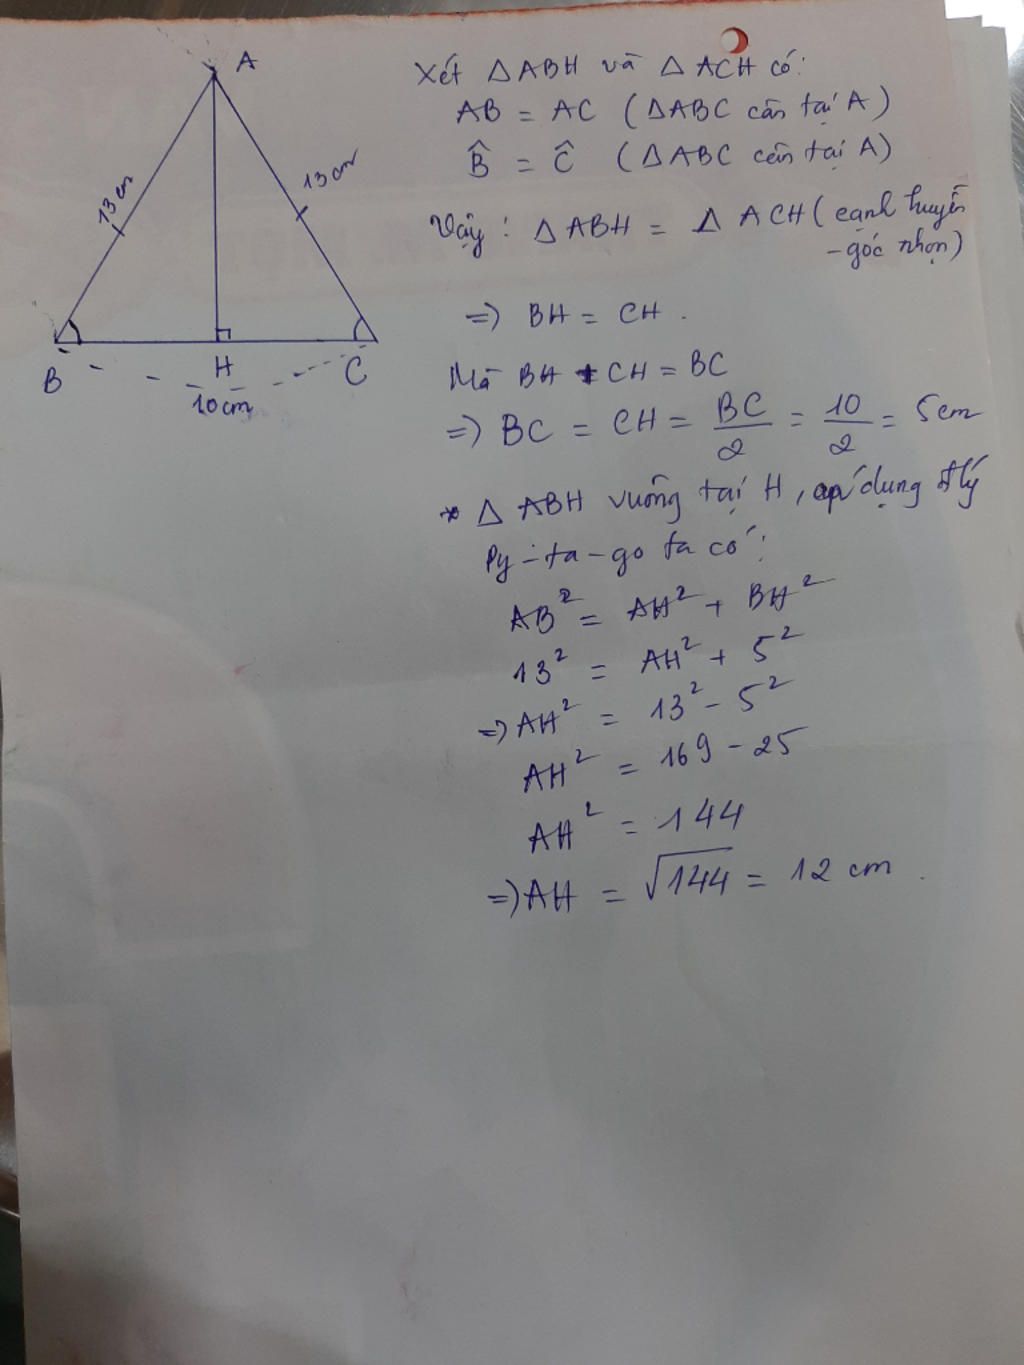 A
13cm
13cm
B
H
C
10cm
Xét △ABH và △ACH có:
AB = AC (△ABC cân tại A)
B̂ = Ĉ (△ABC cân tại A)
Vậy: △ABH = △ACH (cạnh huyền
-góc nhọn)
=> BH = CH.
Mà BH + CH = BC
=> BC = CH = BC/2 = 10/2 = 5cm
* △ABH vuông tại H, áp dụng đlý
Py-ta-go ta có:
AB² = AH² + BH²
13² = AH² + 5²
=> AH² = 13² - 5²
AH² = 169 - 25
AH² = 144
=> AH = √144 = 12 cm.